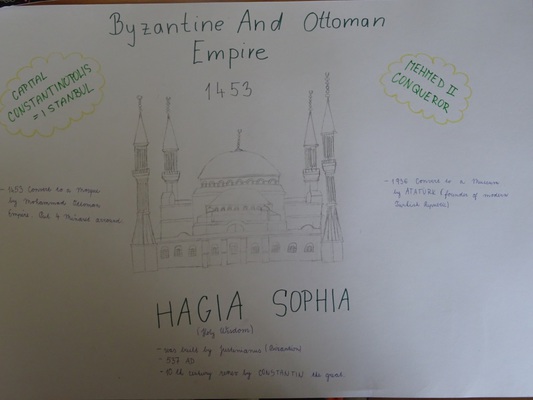 Byzantine And Ottoman
Empire
1453
CAPITAL
CONSTANTINOPOLIS
= ISTANBUL
MEHMED II
CONQUEROR
- 1453 Convert to a Mosque
by Mohammed Ottoman
Empire. Put 4 Minaret around.
- 1936 Convert to a Museum
by ATATÜRK (founder of modern
Turkish
HAGIA SOPHIA
(Holy Wisdom)
- was built by Justinianus
- 537 AD
- 10 th century by CONSTANTIN the great.